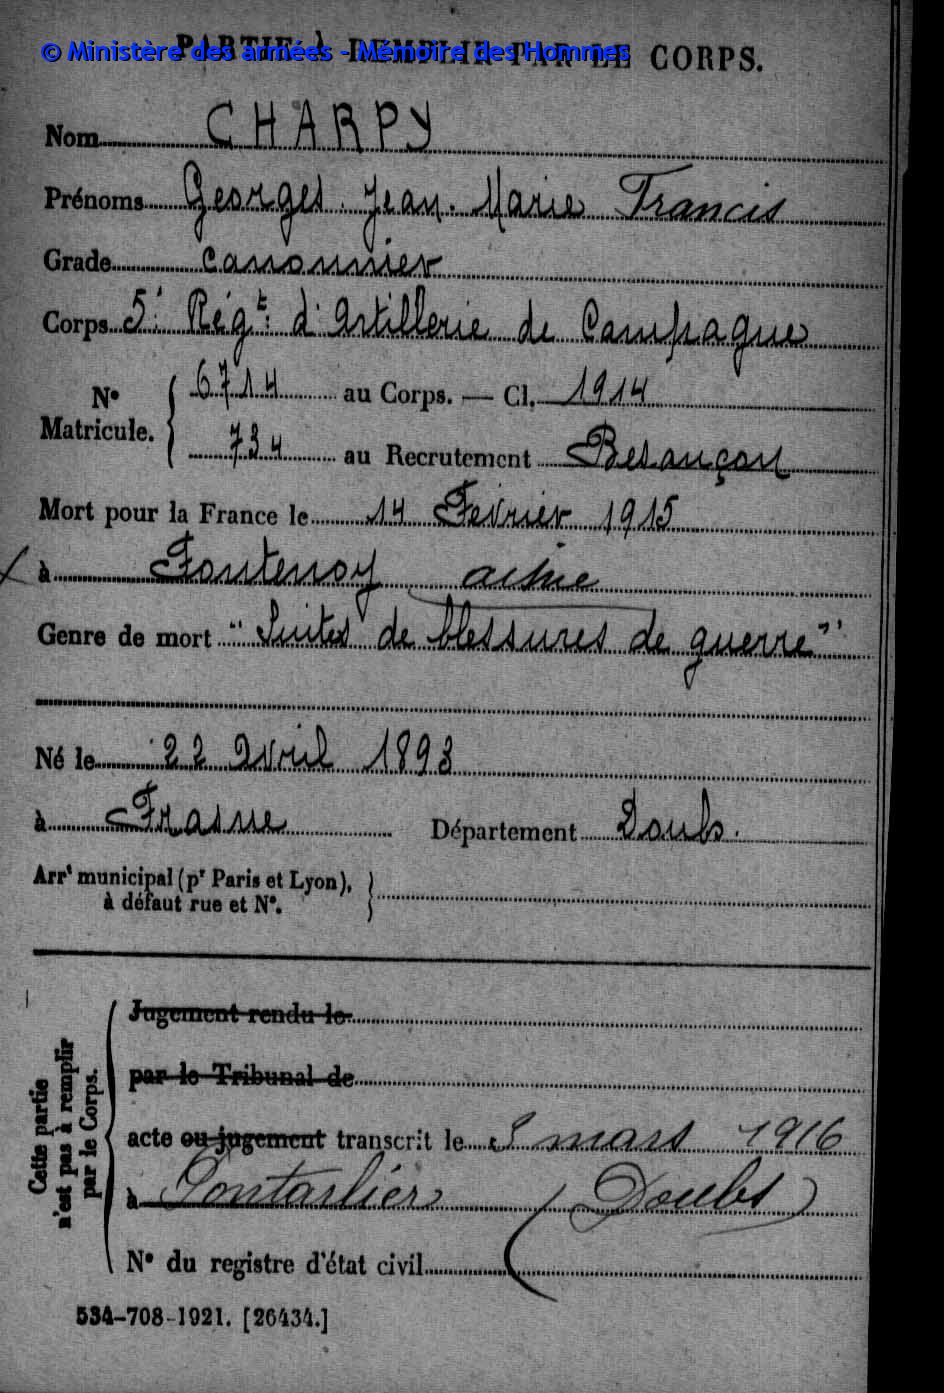 PARTIE À REMPLIR PAR LE CORPS.
© Ministère des armées - Mémoire des Hommes
Nom CHARPY
Prénoms Georges Jean Marie Francis
Grade canonnier
Corps 5e Régt d'Artillerie de Campagne
No Matricule. 6714 au Corps. — Cl. 1914
734 au Recrutement Besançon
Mort pour la France le 14 Février 1915
à Fontenoy aisne
Genre de mort "Suites de blessures de guerre"
Né le 22 Avril 1893
à Frasne Département Doubs.
Arrt municipal (pr Paris et Lyon), à défaut rue et No.
Cette partie n'est pas à remplir par le Corps.
Jugement rendu le
par le Tribunal de
acte ou jugement transcrit le mars 1916
à Pontarlier (Doubs)
No du registre d'état civil
534-708-1921. [26434.]